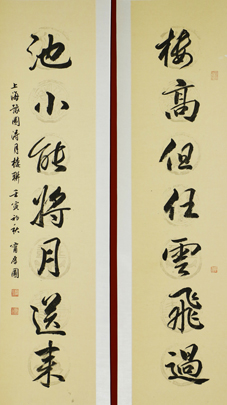 楼高但任雲飛過
池小能將月送来
上海豫園得月楼聯壬寅初秋